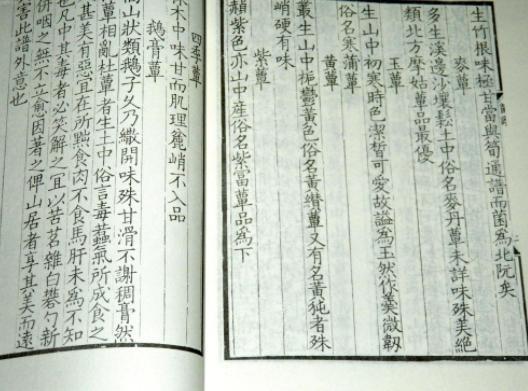 生竹根味極甘當與筍通譜而菌爲北阮矣
麥蕈
多生溪邊沙壤鬆土中俗名麥丹蕈未詳味殊美絕
類北方摩姑蕈品最優
玉蕈
生山中初寒時色潔皙可愛故謚爲玉然作羹微韌
俗名寒蒲蕈
黃蕈
叢生山中梔鬱黃色俗名黃纘蕈又有名黃㹠者殊
峭硬有味
紫蕈
赬紫色亦山中産俗名紫當蕈品爲下
四季蕈
木中味甘而肌理麄峭不入品
鵝膏蕈
山狀類鵝子久乃繖開味殊甘滑不謝稠膏然
蕈相亂杜蕈者生土中俗言毒蠚氣所成食之
甚美有惡宜在所黜食肉不食馬肝未爲不知
也凡中其毒者必笑解之宜以苦茗雜白礬勺新
併咽之無不立愈因著之俾山居者享其美而遠
害此譜外意也